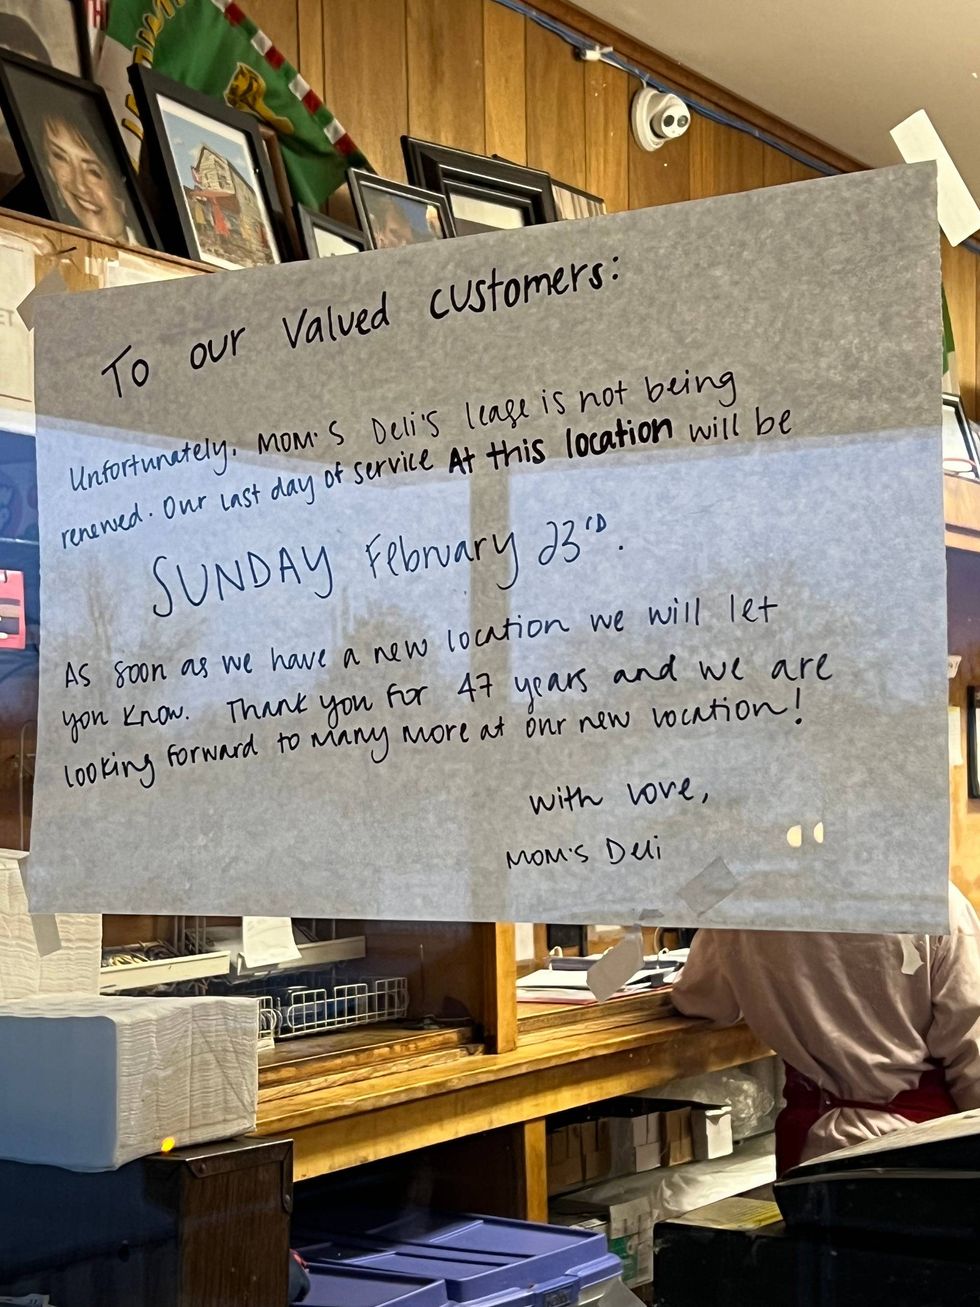 To our Valued customers:
Unfortunately, MOM'S Deli's lease is not being
renewed. Our last day of service At this location will be
SUNDAY February 23'RD.
As soon as we have a new location we will let
you know. Thank you for 47 years and we are
looking forward to many more at our new location!
with love,
MOM'S Deli